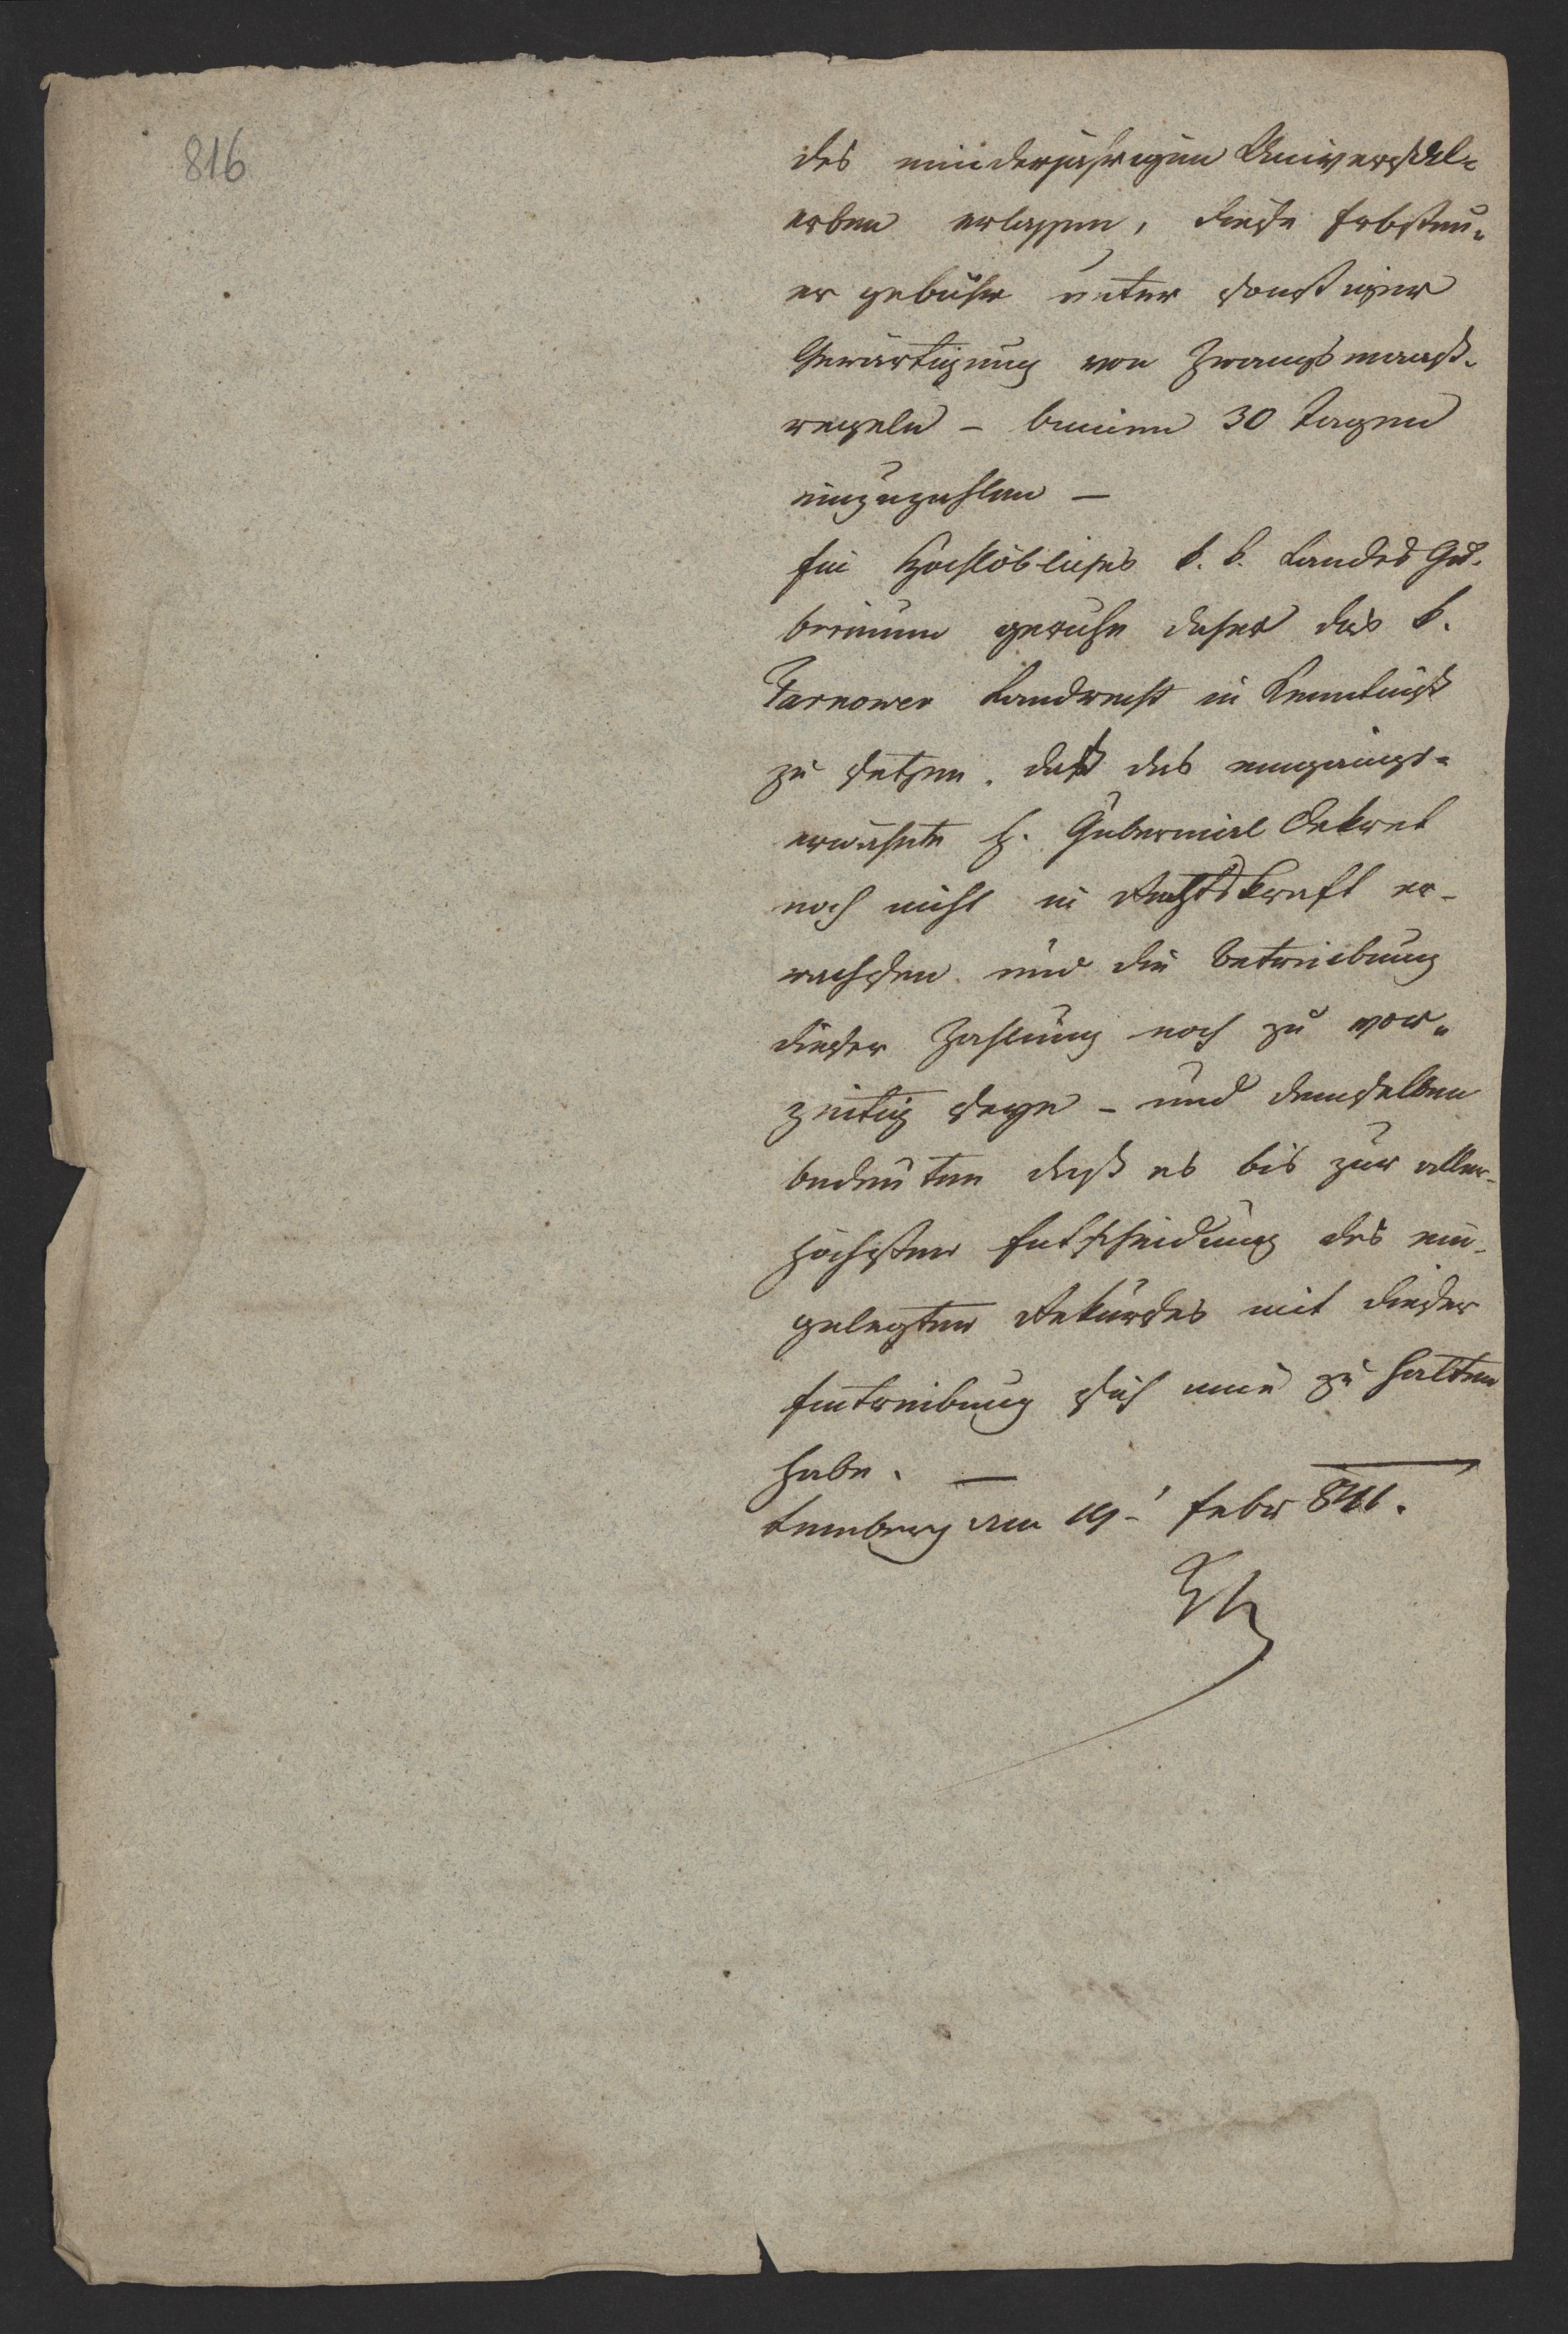 816
des minderjährigen Universal-
erben erlassen, diese Erbsteu-
er gebühr unter sonstiger
Gewärtigung von Zwangsmaaß-
regeln – binnen 30 Tagen
einzuzahlen –
Ein Hochlöbliches k. k. Landes Gu-
bernium geruhe daher das k.
Tarnower Landrecht in Kenntniß
zu setzen, daß das eingangs-
erwähnte h. Gubernial Dekret
noch nicht in Rechtskraft er-
wachsen und die Betreibung
dieser Zahlung noch zu vor-
zeitig seye – und demselben
bedeuten daß es bis zur aller-
höchsten Entscheidung des ein-
gelegten Rekurses mit dieser
Eintreibung sich inne zu halten
habe. –
Lemberg am 19. Febr 841.